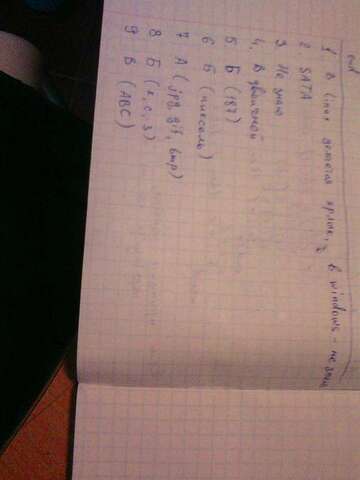 1 В Linux делотая ярлык, в windows - не знаю
2 SATA
3 Не знаю
4. В двоичной
5 Б (187)
6 Б (пиксель)
7 А (jpg, gif, bmp)
8 Б (к, с, з)
9 В (АВС)